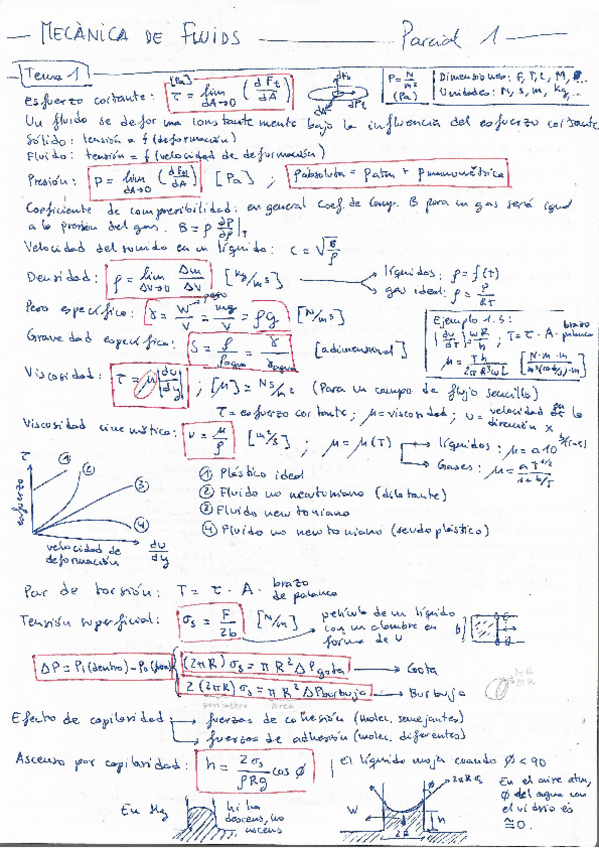 MECÀNICA DE FLUIDS Parcial 1
Tema 1
Esfuerzo cortante: [Pa] τ = lim dA→0 (dFt/dA)
P = N/m² (Pa)
Dimensiones: F, T, L, M, ...
Unidades: N, s, m, kg, ...
Un fluido se deforma constantemente bajo la influencia del esfuerzo cortante
Sólido: tensión = f (deformación)
Fluido: tensión = f (velocidad de deformación)
Presión: P = lim dA→0 (dFn/dA) [Pa] ; Pabsoluta = Patm + Pmanométrica
Coeficiente de compresibilidad: en general Coef. de Comp. B para un gas será igual
a la presión del gas. B = ρ ∂P/∂ρ|T
Velocidad del sonido en un líquido: C = √(B/ρ)
Densidad: ρ = lim ΔV→0 Δm/ΔV [kg/m³] líquidos: ρ = f(T)
gas ideal: ρ = P/RT
Peso específico: γ = W/V = mg/V = ρg [N/m³]
peso
Gravedad específica: S = ρ/ρagua = γ/γagua [adimensional]
Ejemplo 1.3:
|du/dr| = ωR/h ; T = τ · A · brazo palanca
μ = Th/2πR³ωL
Viscosidad: τ = μ|du/dy| ; [μ] = Ns/m² (Para un campo de flujo sencillo)
τ = esfuerzo cortante; μ = viscosidad; u = velocidad en la dirección x
Viscosidad cinemática: ν = μ/ρ [m²/s] ; μ = μ(T)
líquidos:
Gases:
τ
esfuerzo
① ② ③ ④
velocidad de deformación du/dy
① Plástico ideal
② Fluido no newtoniano (dilatante)
③ Fluido newtoniano
④ Fluido no newtoniano (seudoplástico)
Par de torsión: T = τ · A · brazo de palanca
Tensión superficial: σs = F/2b [N/m] película de un líquido
con un alambre en
forma de U
b
ΔP = Pi(dentro) - Po(fuera) (2πR) σs = πR² ΔPgota → Gota
2(2πR) σs = πR² ΔPburbuja → Burbuja
perímetro área
Efecto de capilaridad: fuerzas de cohesión (molec. semejantes)
fuerzas de adhesión (molec. diferentes)
Ascenso por capilaridad: h = 2σs/ρRg cos φ | el líquido moja cuando φ < 90
En Hg hi ha descens, no ascens
W φ 2πRσs h 2R
En el aire atm,
φ del agua con
el vidrio es
≅ 0.